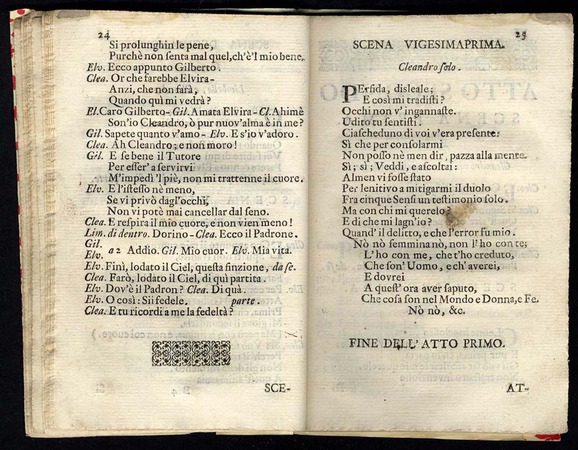 24
Si prolunghin le pene,
Purchè non senta mal quel, ch'è'l mio bene.
Elv. Ecco appunto Gilberto.
Clea. Or che farebbe Elvira-
Anzi, che non farà,
Quando quì mi vedrà?
El. Caro Gilberto- Gil. Amata Elvira- Cl. Ahimè
Son'io Cleandro, ò pur nuov'alma è in me?
Gil. Sapete quanto v'amo- Elv. E s'io v'adoro.
Clea. Ah Cleandro; e non moro!
Gil. E se bene il Tutore
Per esser' a servirvi
M'impedì 'l piè, non mi trattenne il cuore.
Elv. E l'istesso nè meno,
Se vi privò dagl'occhi,
Non vi potè mai cancellar dal seno.
Clea. E respira il mio cuore, e non vien meno!
Lim. di dentro. Dorino- Clea. Ecco il Padrone.
Gil.
Elv. a 2 Addio. Gil. Mio cuor. Elv. Mia vita.
Elv. Finì, lodato il Ciel, questa finzione, da se.
Clea. Farò, lodato il Ciel, di quì partita.
Elv. Dov'è il Padron? Clea. Di quà.
Elv. O così: Sii fedele. parte.
Clea. E tu ricordi a me la fedeltà?
SCE-
25
SCENA VIGESIMAPRIMA.
Cleandro solo.
PErsida, disleale;
E così mi tradisti?
Occhi non v'ingannaste.
Udito tu sentisti.
Ciascheduno di voi v'era presente:
Sì che per consolarmi
Non posso nè men dir, pazza alla mente.
Sì; sì; Veddi, e ascoltai:
Almen vi fosse stato
Per lenitivo a mitigarmi il duolo
Fra cinque Sensi un testimonio solo.
Ma con chi mi querelo?
E di che mi lagn'io?
Quand' il delitto, e che l'error fu mio.
Nò nò semmina nò, non l'ho con te;
L'ho con me, che t'ho creduto,
Che son' Uomo, e ch'averei,
E dovrei
A quest' ora aver saputo,
Che cosa son nel Mondo e Donna, e Fe.
Nò nò, &c.
FINE DELL'ATTO PRIMO.
AT-